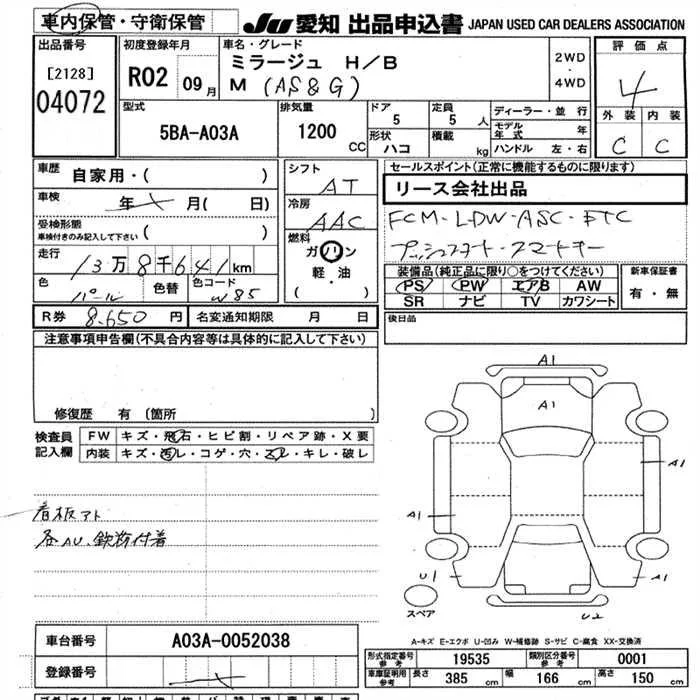 車内保管・守衛保管
JU 愛知 出品申込書 JAPAN USED CAR DEALERS ASSOCIATION
出品番号
[2128]
04072
初度登録年月
R02 09月
車名・グレード
ミラージュ H/B
M (AS&G)
2WD
・
4WD
評価点
4
外装 内装
C C
型式
5BA-A03A
排気量
1200 CC
ドア
5
定員
5 人
形状
ハコ
積載
kg
ディーラー・並行
モデル年式 年
ハンドル 左・右
車歴 自家用・( )
車検 年 月( 日)
受検形態
車検付きのみ記入して下さい ( )
走行 13万8千641km
色 パール 色替 色コード W85
シフト
AT
冷房
AAC
燃料
ガソリン
軽・油
( )
セールスポイント(正常に機能するものに限ります)
リース会社出品
FCM・LDW・ASC・ETC
プッシュスタート・スマートキー
装備品(純正品に限り○をつけてください)
PS PW エアB AW
SR ナビ TV カワシート
新車保証書
有・無
R券 8,650 円 名変通知期限 月 日
後日品
注意事項申告欄(不具合内容等は具体的に記入して下さい)
修復歴 有(箇所
検査員
記入欄
FW キズ・飛石・ヒビ割・リペア跡・X要
内装 キズ・汚レ・コゲ・穴・スレ・キレ・破レ
看板アト
A1
A1
A1
A1
U1
A1
U2
スペア
A-キズ E-エクボ U-凹み W-補修跡 S-サビ C-腐食 XX-交換済
車台番号 A03A-0052038
登録番号
形式指定番号
参考
19535
類別区分番号
参考
0001
車庫証明用
参考
長さ 385 cm 幅 166 cm 高さ 150 cm